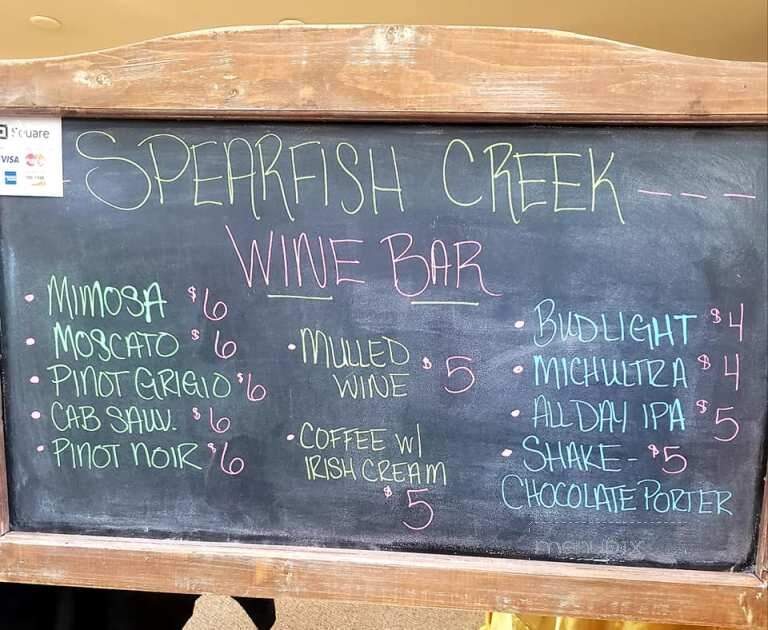 Square
VISA
SPEARFISH CREEK ---
WINE BAR
• MIMOSA $6
• MOSCATO $6
• PINOT GRIGIO $6
• CAB SAUV. $6
• PINOT NOIR $6
• MULLED $5
WINE
• COFFEE W/
IRISH CREAM
$5
• BUD LIGHT $4
• MICH ULTRA $4
• ALL DAY IPA $5
• SHAKE - $5
CHOCOLATE PORTER
menupix